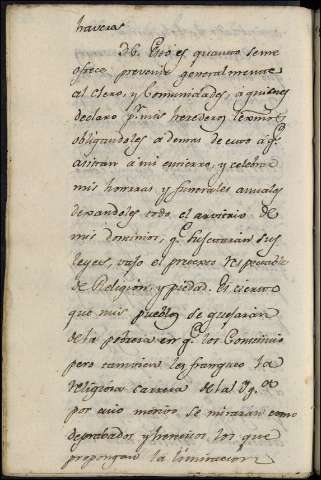 traveras
36. Esto es quanto se me
ofrece prevenir generalmente
al Clero, y Comunidades, a quienes
declaro pr. mis herederos
obligandoles a demas de esto a qe.
asistan a mi entierro, y celebren
mis honrras, y funerales anuales
dexandoles todo el arvitrio de
mis dominios, qe. sus
leyes, vajo el pretexto respetable
de Religion, y piedad. Es cierto
que mis pueblos se quejaran
de la pobreza en qe. los Constituio
pero tamvien les franqueo la
religiosa carrera de la Ygª
por cuio motivo se miraran como
depravados y hereticos los que
propongan la liminacion